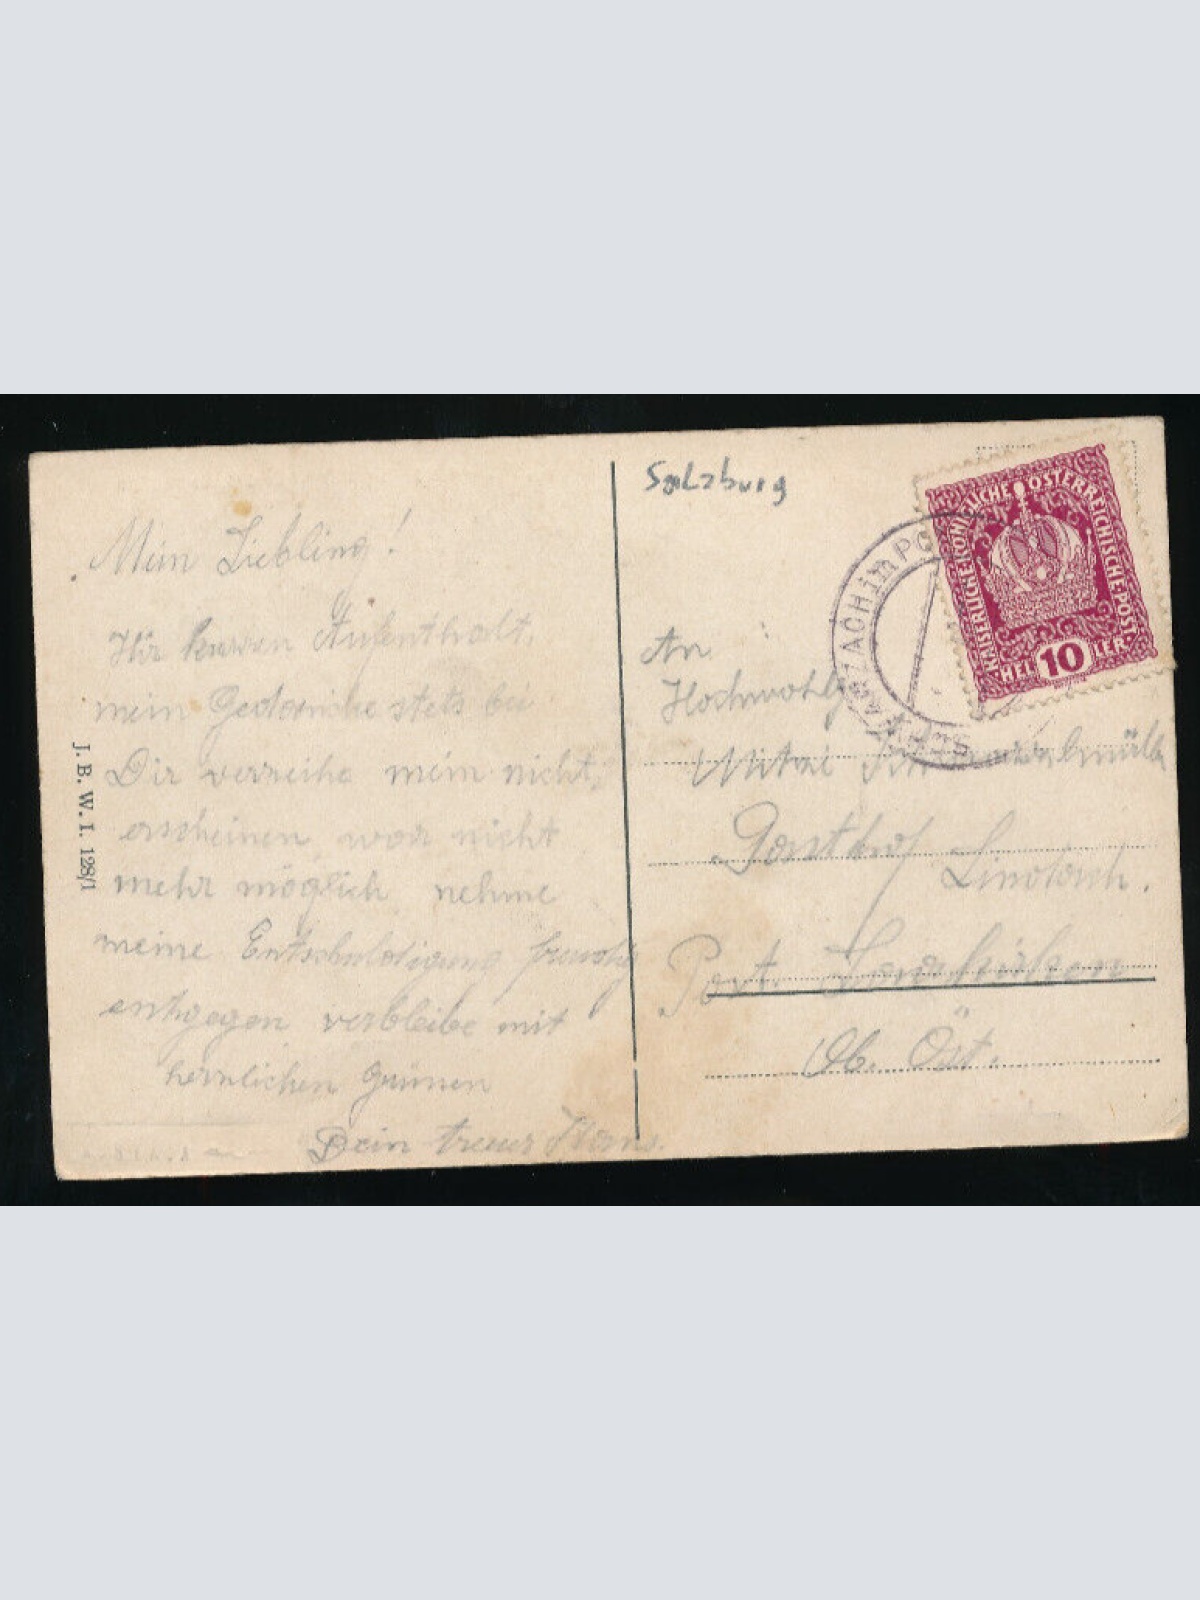 Mein Liebling!
Aufenthalt,
mein Gedanke stets bei
Dir verzeihe mein nicht
erscheinen war nicht
mehr möglich nehme
meine Entschuldigung freudig
entgegen verbleibe mit
herzlichen Grüssen
Dein treuer Hans.
J. B. W. I. 128/1
Salzburg
KAISERLICHE KÖNIGLICHE ÖSTERREICHISCHE POST
HEL 10 LER
SCHWARZACH im PO
An
Hochwohlg
Mitzi
Gasthof
Post
Ob. Öst.